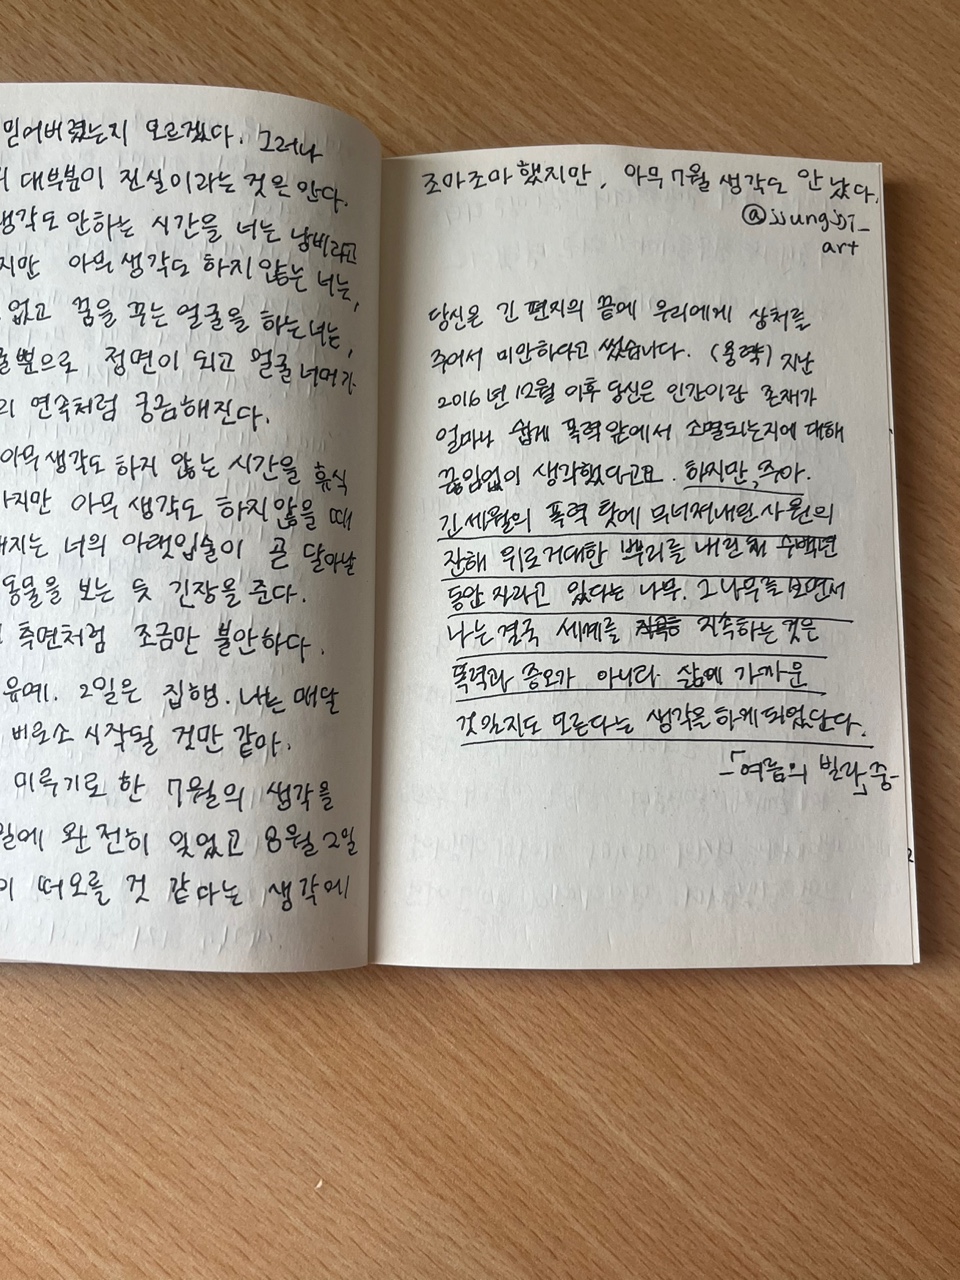 믿어버렸는지 모르겠다. 그러나
대부분이 진실이라는 것은 안다.
생각도 안하는 시간을 너는 낭비라고
지만 아무 생각도 하지 않는 너는,
없고 꿈을 꾸는 얼굴을 하는 너는,
뿐으로 정면이 되고 얼굴 너머가
의 연속처럼 궁금해진다.
아무 생각도 하지 않는 시간을 휴식
하지만 아무 생각도 하지 않을 때
해지는 너의 아랫입술이 곧 달아날
동물을 보는 듯 긴장을 준다.
측면처럼 조금만 불안하다.
유예. 2일은 집행. 나는 매달
비로소 시작될 것만 같아.
미루기로 한 7월의 생각을
일에 완전히 잊었고 8월 2일
이 떠오를 것 같다는 생각에
조마조마 했지만, 아무 7월 생각도 안 났다.
@jjungjji_
art
당신은 긴 편지의 끝에 우리에게 상처를
주어서 미안하다고 썼습니다. (용략) 지난
2016년 12월 이후 당신은 인간이란 존재가
얼마나 쉽게 폭력 앞에서 소멸되는지에 대해
끊임없이 생각했다고요. 하지만, 주아.
긴 세월의 폭력 탓에 무너져내린 사원의
잔해 위로 거대한 뿌리를 내린 채 수백년
동안 자라고 있다는 나무. 그 나무를 보면서
나는 결국 세계를 지속하는 것은
폭력과 증오가 아니라 삶에 가까운
것일지도 모른다는 생각을 하게 되었단다.
-「여름의 빌라」중-